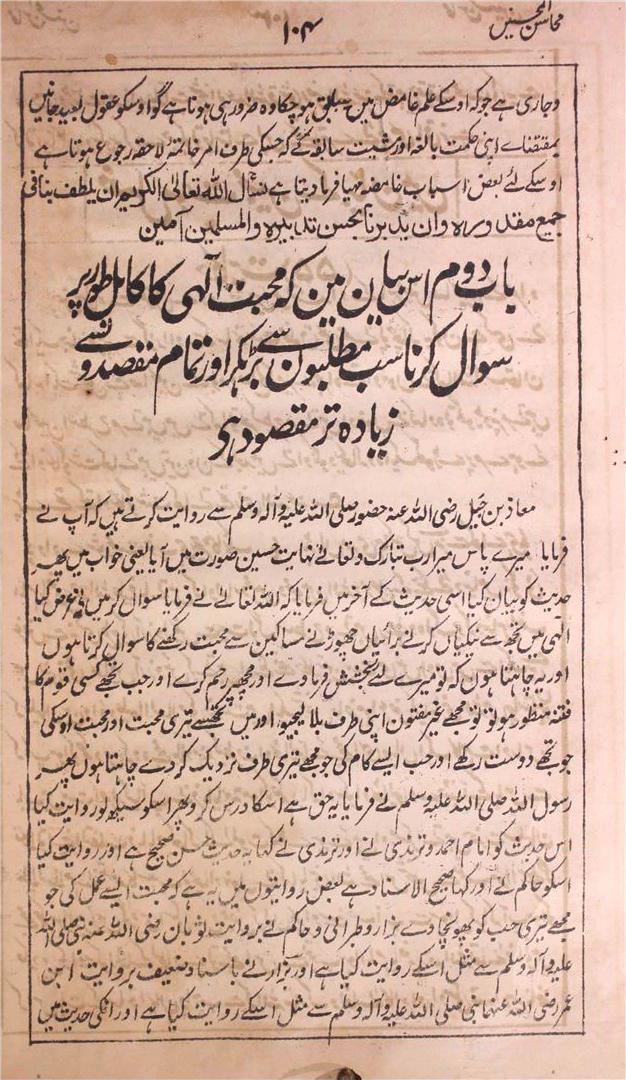 محاسن المحسنین
۱۰۴
وجاری ہے جو کہ اوسکے علم غامض میں سبق ہو چکا وہ ضرور ہی ہوتا ہے گو اوسکو عقول بعید جانیں
بمقتضائے اپنی حکمت بالغہ اور مشیت سابقہ کے کہ جسکی طرف امر خاتمۂ لاحقہ رجوع ہوتا ہے
اوسکے لئے بعض اسباب غامضہ مہیا فرما دیتا ہے نسأل اللہ تعالی الکریم ان یلطف بنا فی
جمیع مقدورہ وان یدبرنا بحسن تدبیرہ والمسلمین آمین
باب دوم اس بیان مین کہ محبت آلہی کا کامل طور پر
سوال کرنا سب مطلبون سے بڑہکر اور تمام مقصدونسے
زیادہ تر مقصود ہی
معاذ بن جبل رضی اللہ عنہ حضور صلی اللہ علیہ وآلہ وسلم سے روایت کرتے ہیں کہ آپ نے
فرمایا میرے پاس میرا رب تبارک و تعالے نہایت حسین صورت میں آیا یعنی خواب میں پھر
حدیث کو بیان کیا اسی حدیث کے آخر میں فرمایا کہ اللہ تعالے نے فرمایا سوال کر میں نے عرض کیا
الہی میں تجھ سے نیکیاں کرنے برائیاں چھوڑنے مساکین سے محبت رکھنے کا سوال کرتا ہوں
اور یہ چاہتا ہوں کہ تو میرے لئے بخشش فرماوے اور مجھپر رحم کرے اور جب تجھے کسی قوم کا
فتنہ منظور ہو تو تو مجھے غیر مفتون اپنی طرف بلا لیجیو اور میں تجھسے تیری محبت اور محبت اوسکی
جو تجھے دوست رکھے اور حب ایسے کام کی جو مجھے تیری طرف نزدیک کر دے چاہتا ہوں پھر
رسول اللہ صلی اللہ علیہ وسلم نے فرمایا یہ حق ہے اسکا درس کرو پھر اسکو سیکھو روایت کیا
اس حدیث کو امام احمد و ترمذی نے اور ترمذی نے کہا یہ حدیث حسن صحیح ہے اور روایت کیا
اسکو حاکم نے اور کہا صحیح الاسناد ہے بعض روایتوں میں یہ ہے کہ محبت ایسے عمل کی جو
مجھے تیری حب کو پھونچا دے بزار و طبرانی و حاکم نے بروایت ثوبان رضی اللہ عنہ نبی صلی اللہ
علیہ وآلہ وسلم سے مثل اسکے روایت کیا ہے اور بزار نے باسناد ضعیف بروایت ابن
عمر رضی اللہ عنہما نبی صلی اللہ علیہ وآلہ وسلم سے مثل اسکے روایت کیا ہے اور انکی حدیث میں